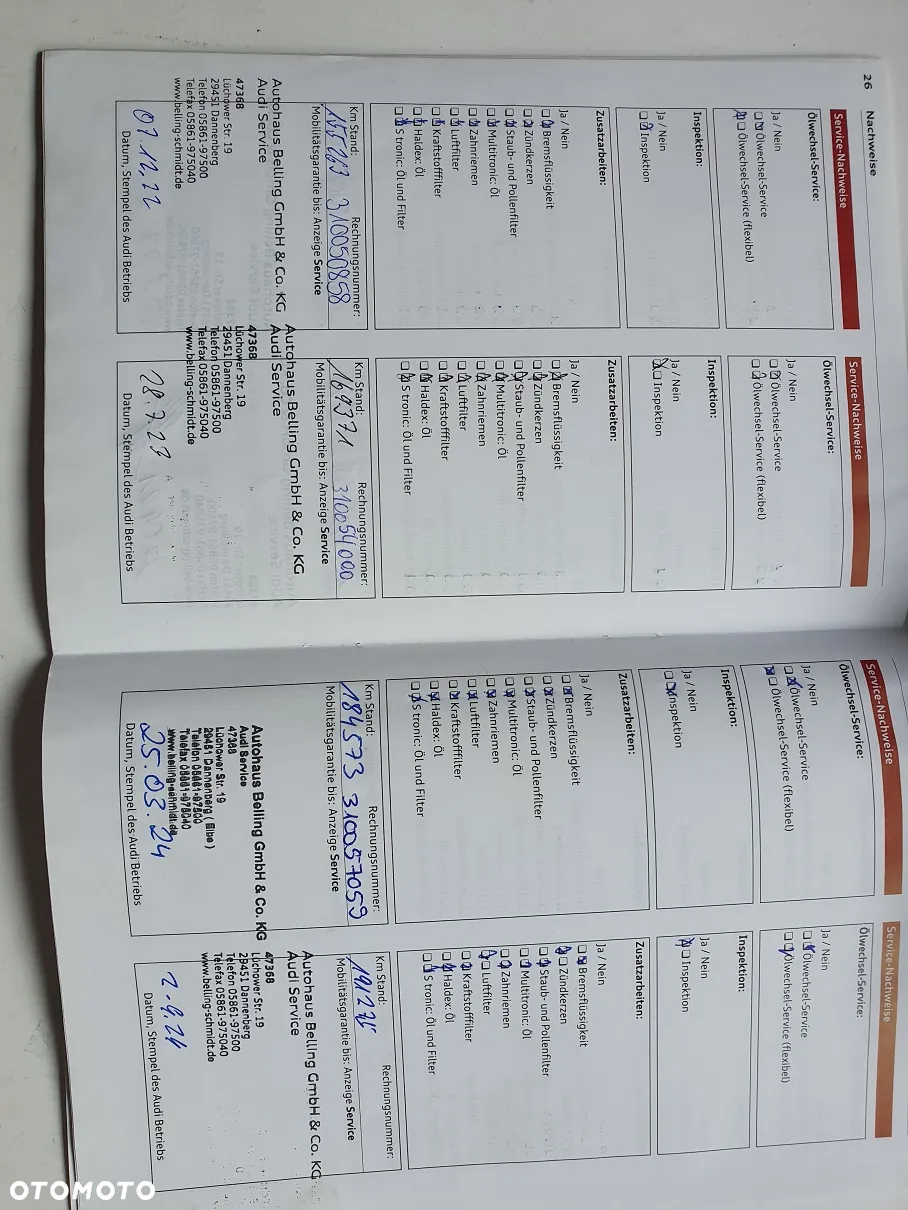 26 Nachweise
Service-Nachweise
Ölwechsel-Service:
Ja / Nein
Ölwechsel-Service
Ölwechsel-Service (flexibel)
Inspektion:
Ja / Nein
Inspektion
Zusatzarbeiten:
Ja / Nein
Bremsflüssigkeit
Zündkerzen
Staub- und Pollenfilter
Multitronic: Öl
Zahnriemen
Luftfilter
Kraftstofffilter
Haldex: Öl
S tronic: Öl und Filter
Km Stand: Rechnungsnummer:
155263 310050858
Mobilitätsgarantie bis: Anzeige Service
Autohaus Belling GmbH & Co. KG
Audi Service
47368
Lüchower Str. 19
29451 Dannenberg
Telefon 05861-97500
Telefax 05861-975040
www.belling-schmidt.de
07.11.22
Datum, Stempel des Audi Betriebs
Service-Nachweise
Ölwechsel-Service:
Ja / Nein
Ölwechsel-Service
Ölwechsel-Service (flexibel)
Inspektion:
Ja / Nein
Inspektion
Zusatzarbeiten:
Ja / Nein
Bremsflüssigkeit
Zündkerzen
Staub- und Pollenfilter
Multitronic: Öl
Zahnriemen
Luftfilter
Kraftstofffilter
Haldex: Öl
S tronic: Öl und Filter
Km Stand: Rechnungsnummer:
169371 310054000
Mobilitätsgarantie bis: Anzeige Service
Autohaus Belling GmbH & Co. KG
Audi Service
47368
Lüchower Str. 19
29451 Dannenberg
Telefon 05861-97500
Telefax 05861-975040
www.belling-schmidt.de
28.7.23
Datum, Stempel des Audi Betriebs
Service-Nachweise
Ölwechsel-Service:
Ja / Nein
Ölwechsel-Service
Ölwechsel-Service (flexibel)
Inspektion:
Ja / Nein
Inspektion
Zusatzarbeiten:
Ja / Nein
Bremsflüssigkeit
Zündkerzen
Staub- und Pollenfilter
Multitronic: Öl
Zahnriemen
Luftfilter
Kraftstofffilter
Haldex: Öl
S tronic: Öl und Filter
Km Stand: Rechnungsnummer:
184573 310057059
Mobilitätsgarantie bis: Anzeige Service
Autohaus Belling GmbH & Co. KG
Audi Service
47368
Lüchower Str. 19
29451 Dannenberg (Elbe)
Telefon 05861-97500
Telefax 05861-975040
www.belling-schmidt.de
25.03.24
Datum, Stempel des Audi Betriebs
Service-Nachweise
Ölwechsel-Service:
Ja / Nein
Ölwechsel-Service
Ölwechsel-Service (flexibel)
Inspektion:
Ja / Nein
Inspektion
Zusatzarbeiten:
Ja / Nein
Bremsflüssigkeit
Zündkerzen
Staub- und Pollenfilter
Multitronic: Öl
Zahnriemen
Luftfilter
Kraftstofffilter
Haldex: Öl
S tronic: Öl und Filter
Km Stand: Rechnungsnummer:
Mobilitätsgarantie bis: Anzeige Service
Autohaus Belling GmbH & Co. KG
Audi Service
47368
Lüchower Str. 19
29451 Dannenberg
Telefon 05861-97500
Telefax 05861-975040
www.belling-schmidt.de
2.9.24
Datum, Stempel des Audi Betriebs
OTOMOTO